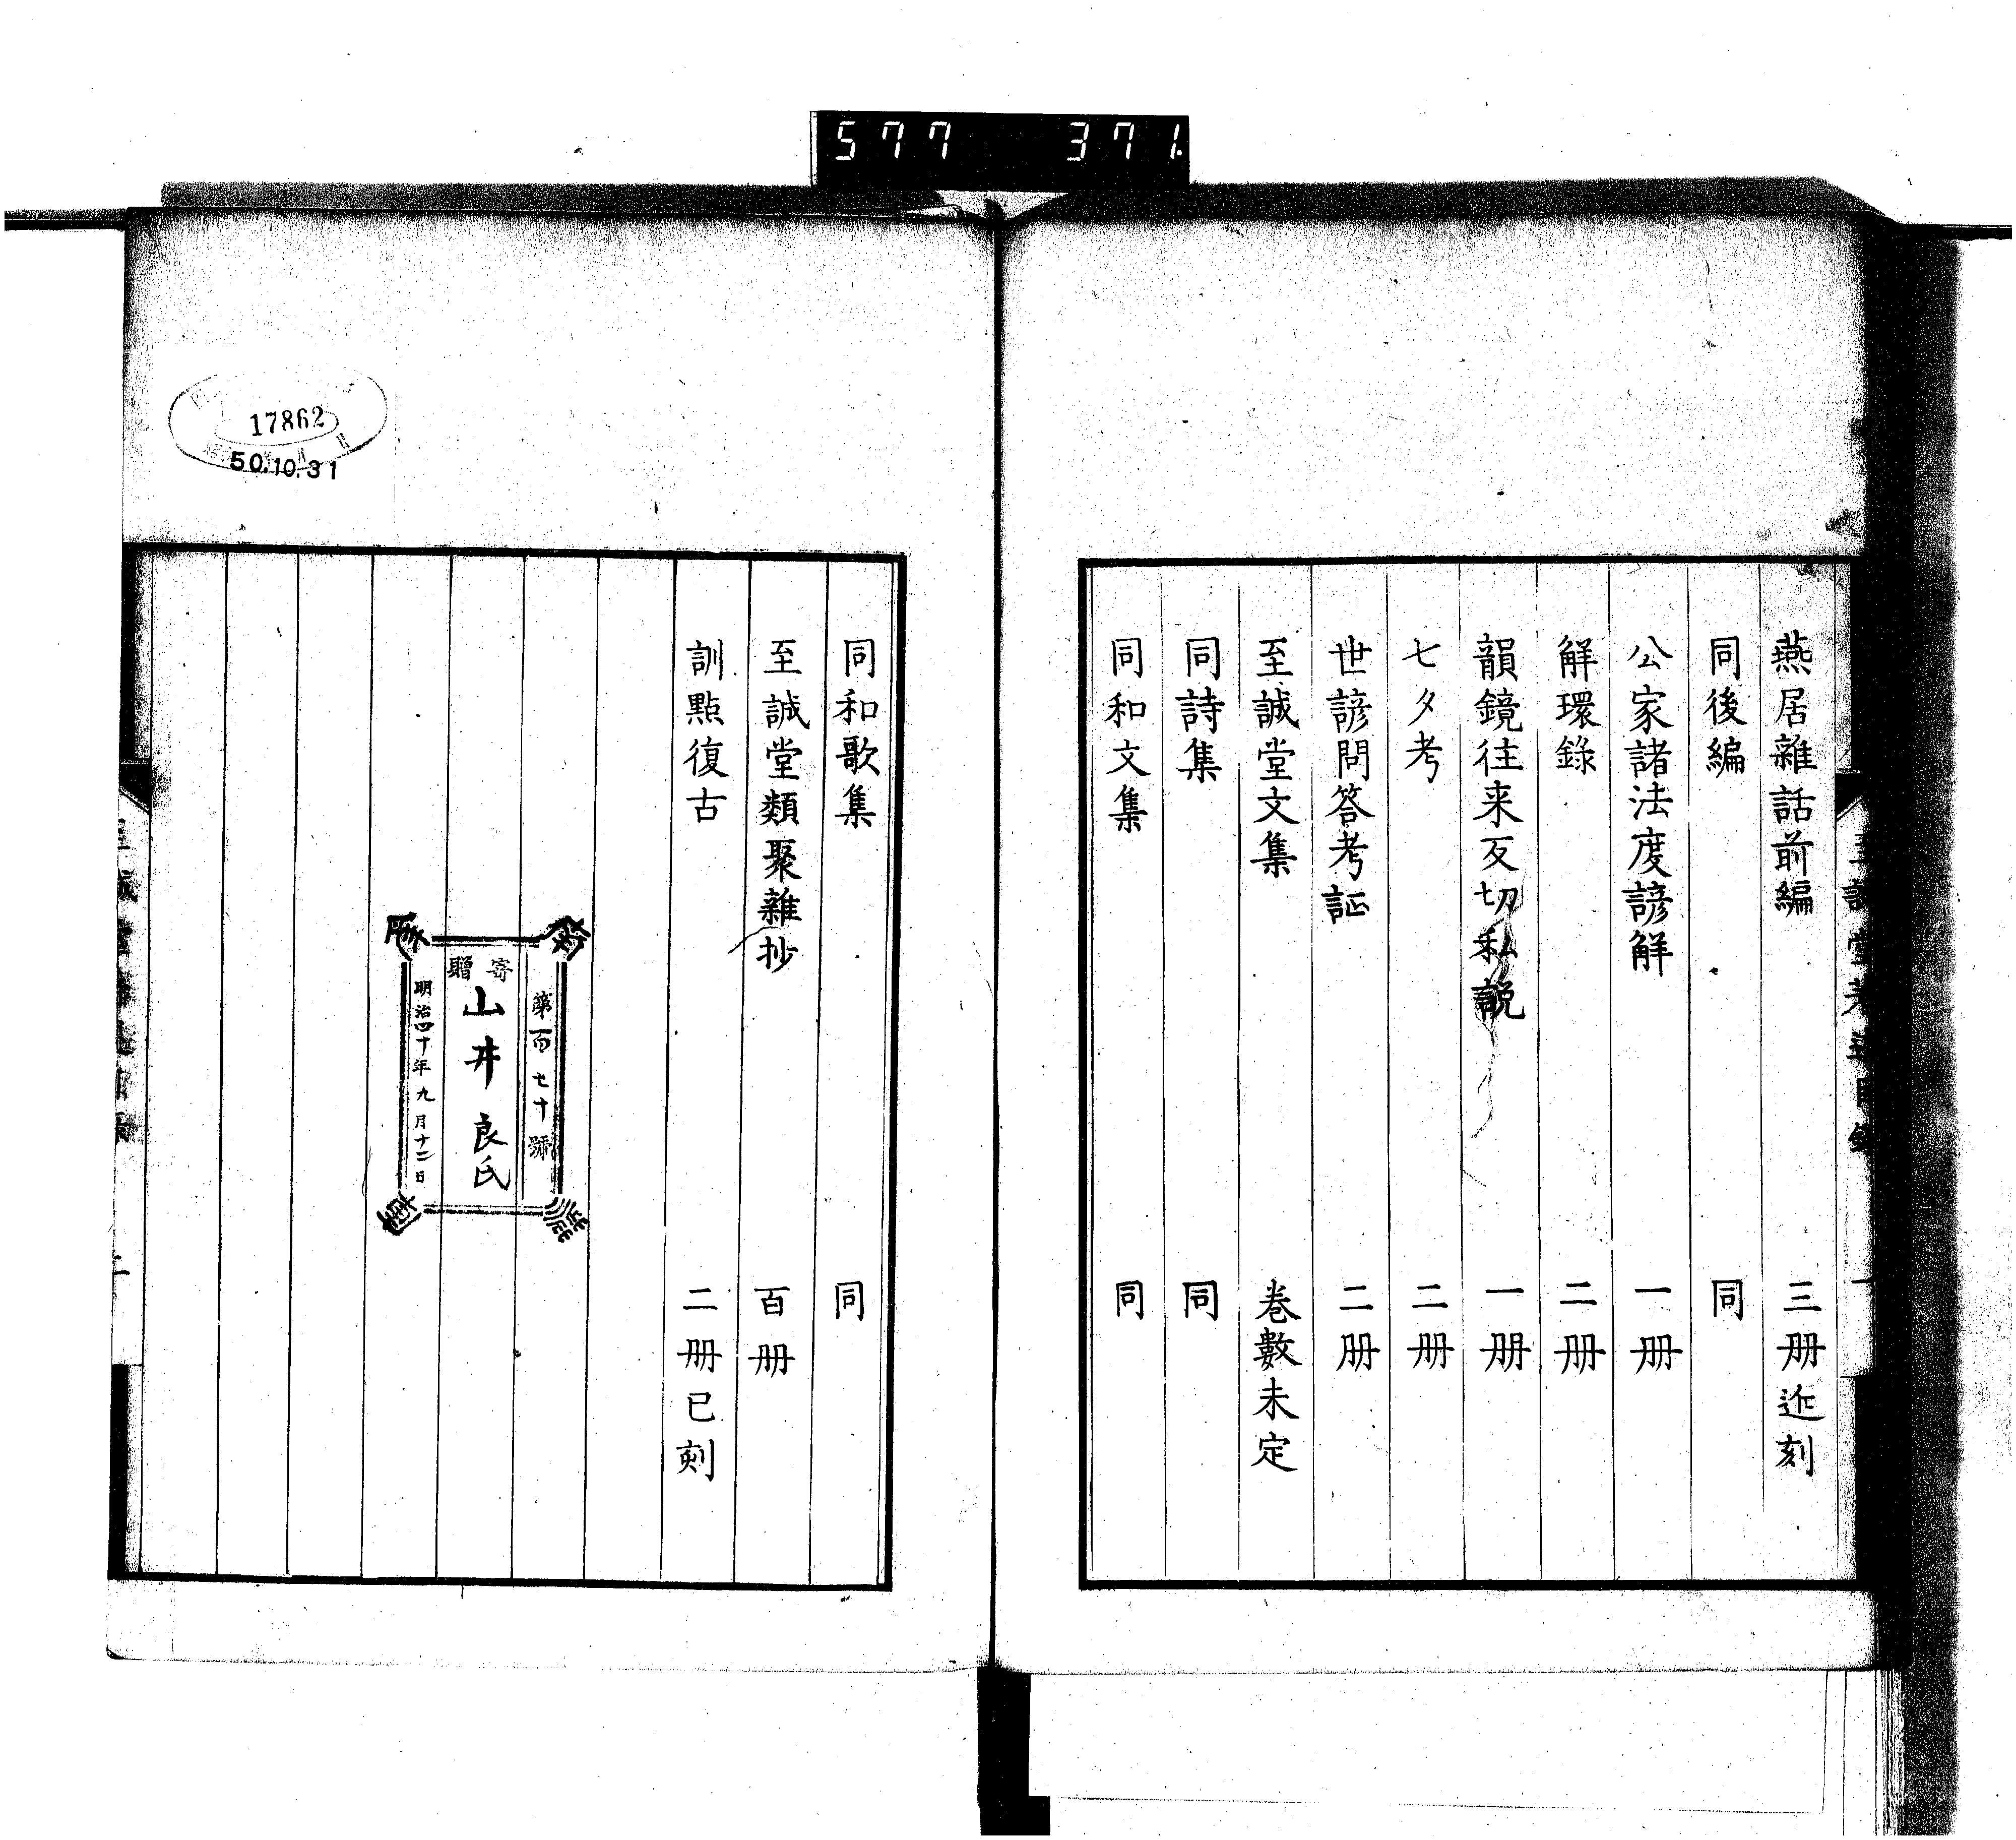 577 371.
燕居雜話前編 三册近刻
同後編 同
公家諸法度諺解 一册
解環錄 二册
韻鏡往来反切私說 一册
七夕考 二册
世諺問答考証 二册
至誠堂文集 卷數未定
同詩集 同
同和文集 同
同和歌集 同
至誠堂類聚雜抄 百册
訓點復古 二册已刻
第百七十號
寄贈
山井良氏
明治四十年九月十二日
17862
50.10.31